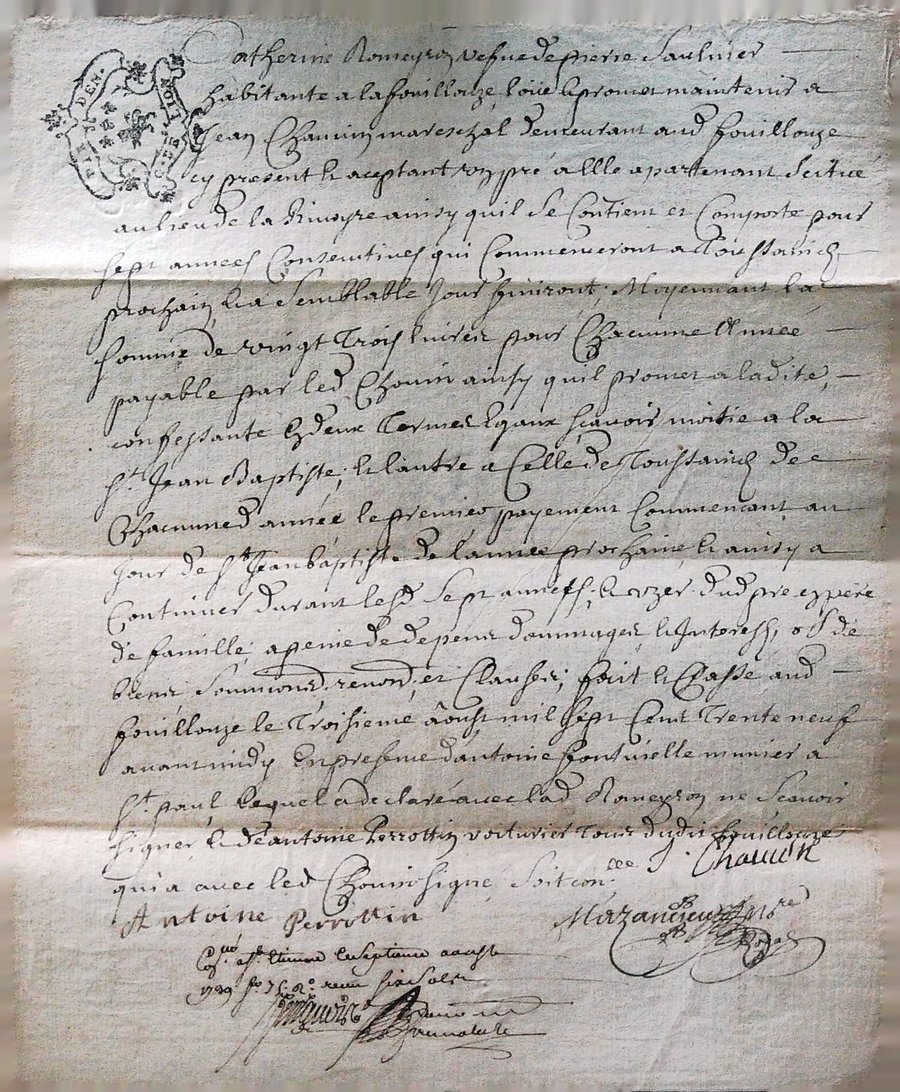 Catherine Romeyron vefue de pierre Saulnier
habitante a la fouillouze, loüe & promet maintenir a
Jean Chauuin mareschal demeurant aud fouillouze
cy present & aceptant son pré a Elle apartenant Scitué
au lieu de la Riuoyre ainsy quil Se Contient et Comporte pour
Sept années Consecutiues qui Commenceront a Toussainctz
prochain & a Semblable Jour finiront; Moyennant la
Somme de vingt Trois liures pour Chacunne Année
payable par led Chouin ainsy quil promet a ladite,
confessante En deux Termes Egaux scauoir moitié a la
St Jean Baptiste; & lautre a Celle de Toussainctz de
Chacunne d année le premier payement Commencant au
Jour de St Jean baptiste de lannee prochaine, & ainsy a
Continuer durant lesd Sept années; & Vzer dud pre en pere
de famille, a peine de depens dommages & Interest, obs de
biens Soumions, renon, et Clauses; fait & Passé aud
fouillouze le Troisieme aoust mil Sept Cent Trente neuf
auant midy En presence dantoine fontvielle munier a
St paul Lequel a declaré auec lad Romeyron ne Scauoir
signer, & De antoine Perrottin voiturier dudit fouillouze
qui a auec led Chouin signé, Soit con.lle J. Chauuin
Antoine Perrottin
Con.lé a St Etienne le Septieme aoust
1739 fo 75 receu Six Sols